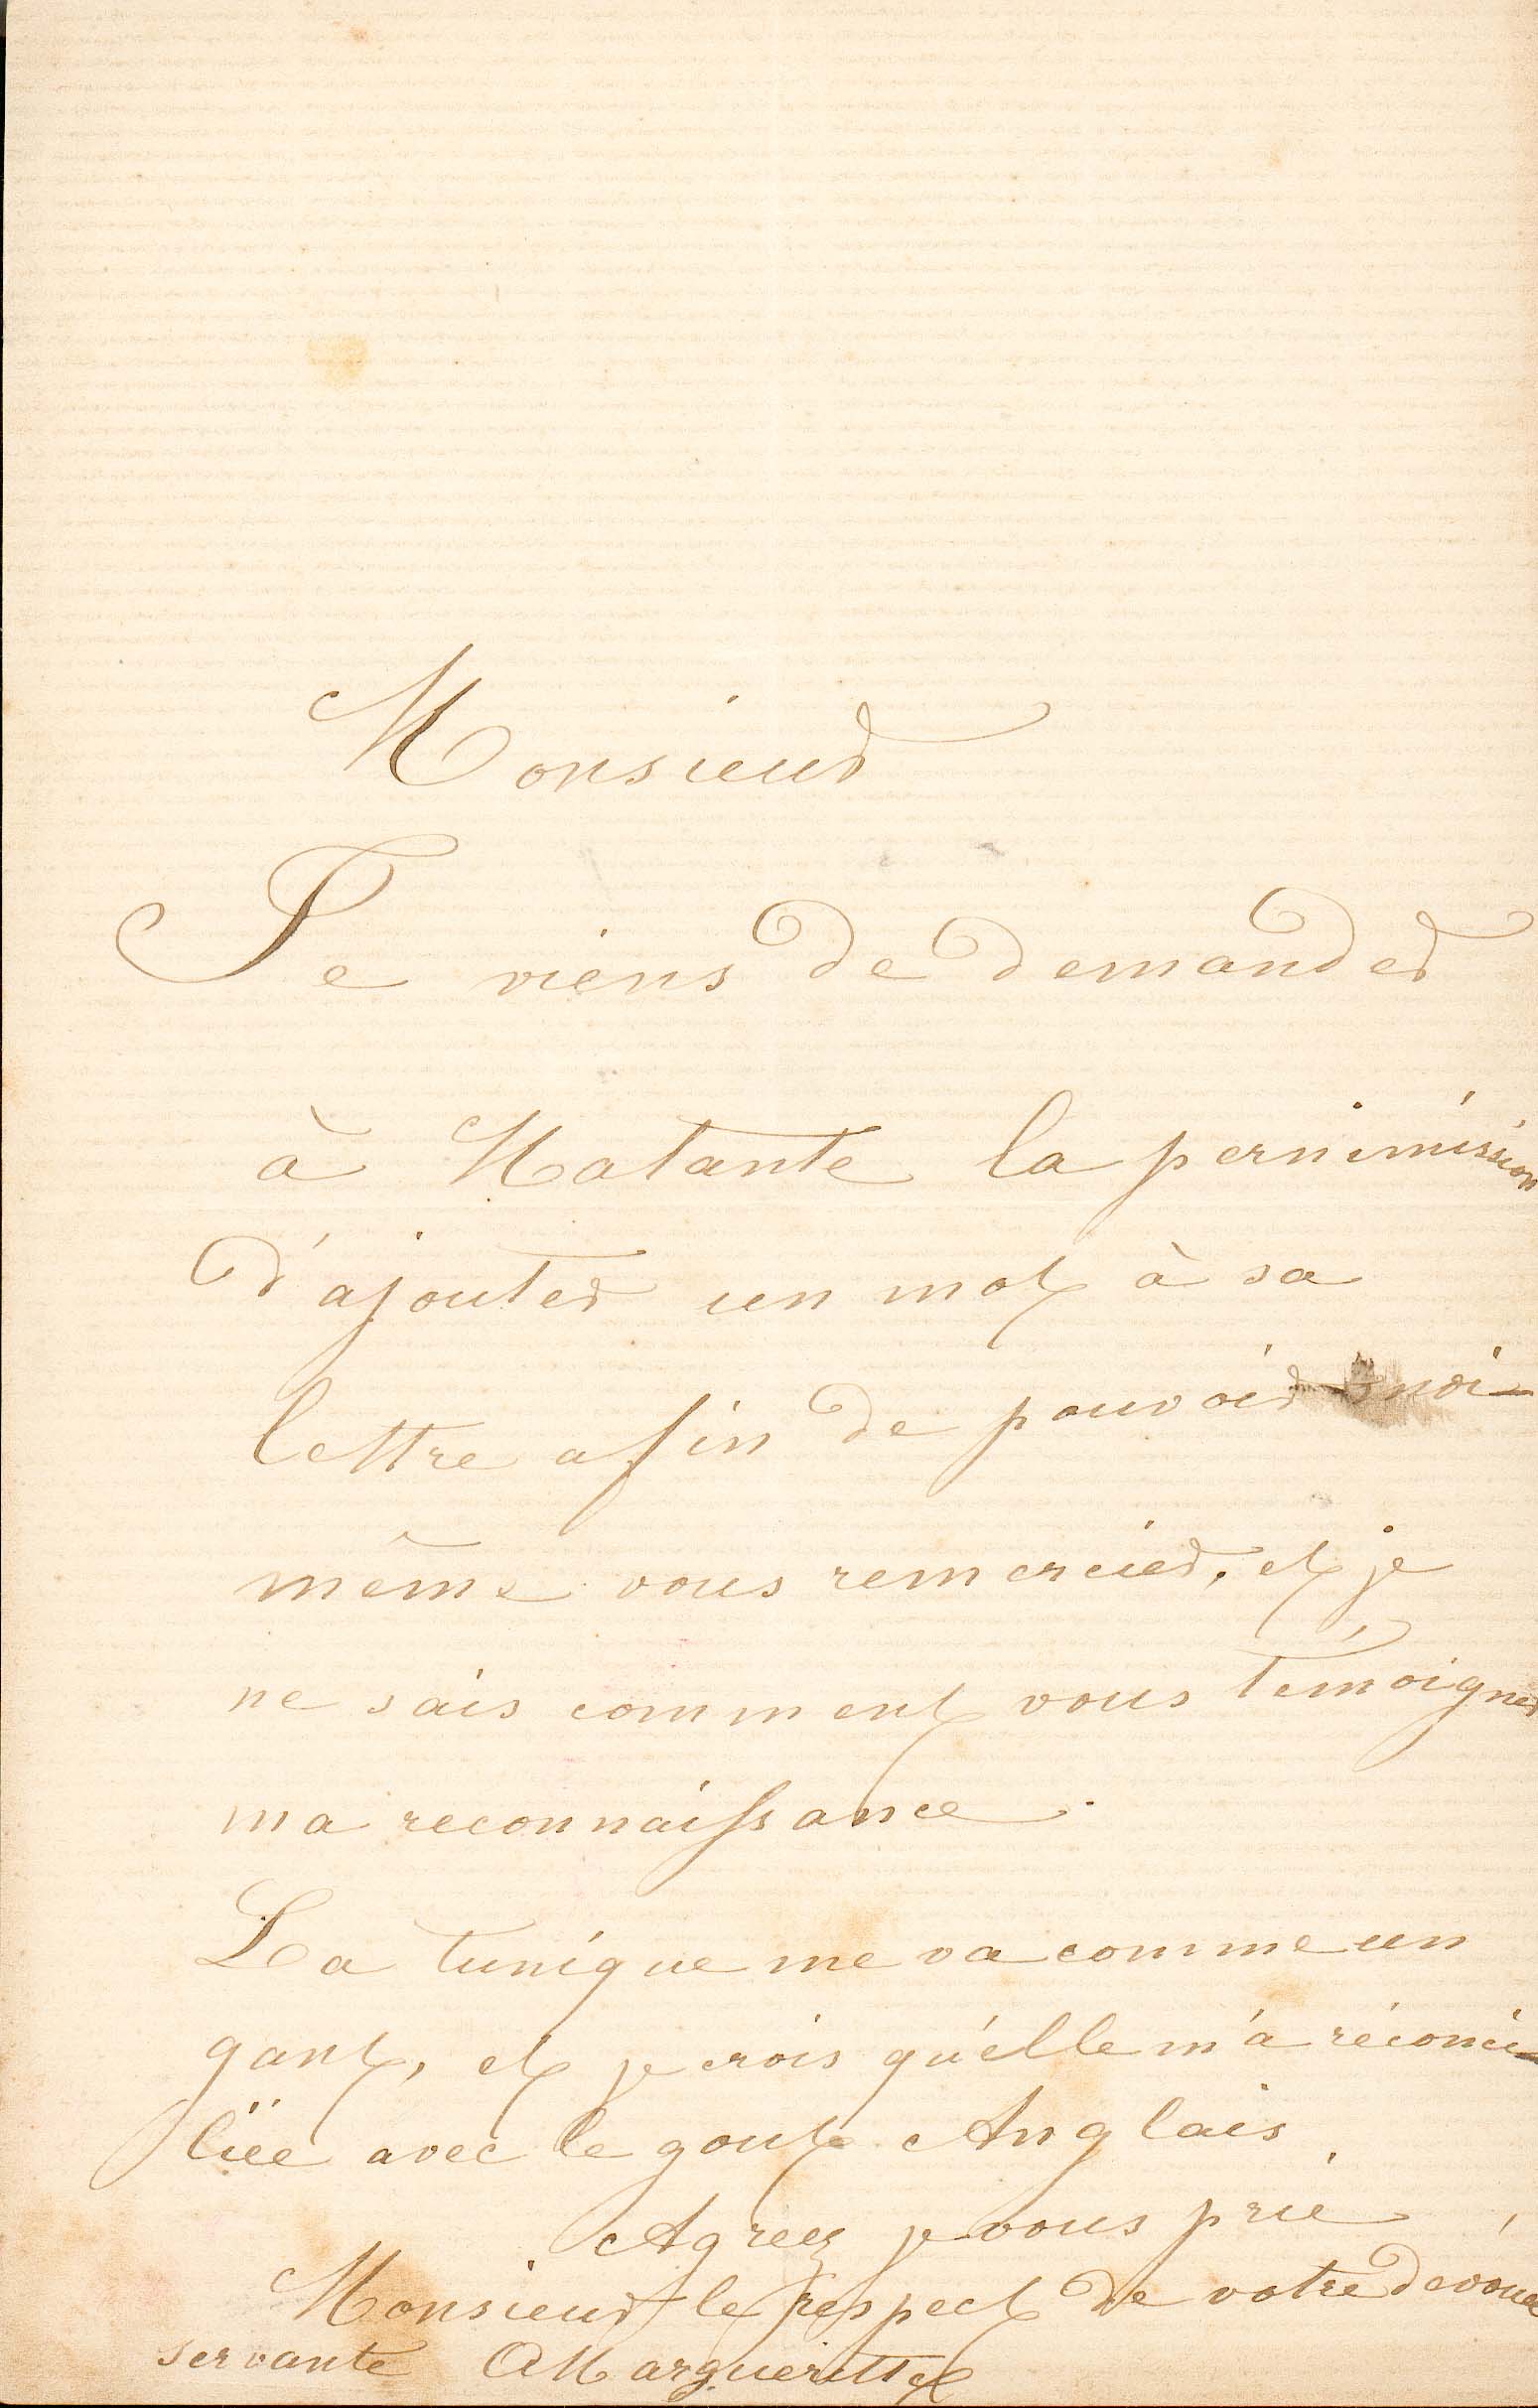 Monsieur
Je viens de demander
à Matante la permimission
d'ajouter un mot à sa
lettre afin de pouvoir moi
même vous remercier, et je
ne sais comment vous témoigner
ma reconnaissance.
La tunique me va comme un
gant, et je crois qu'elle m'a réconci-
liée avec le gout Anglais
Agreez je vous prie
Monsieur le respect de votre dévouée
servante Margueritte